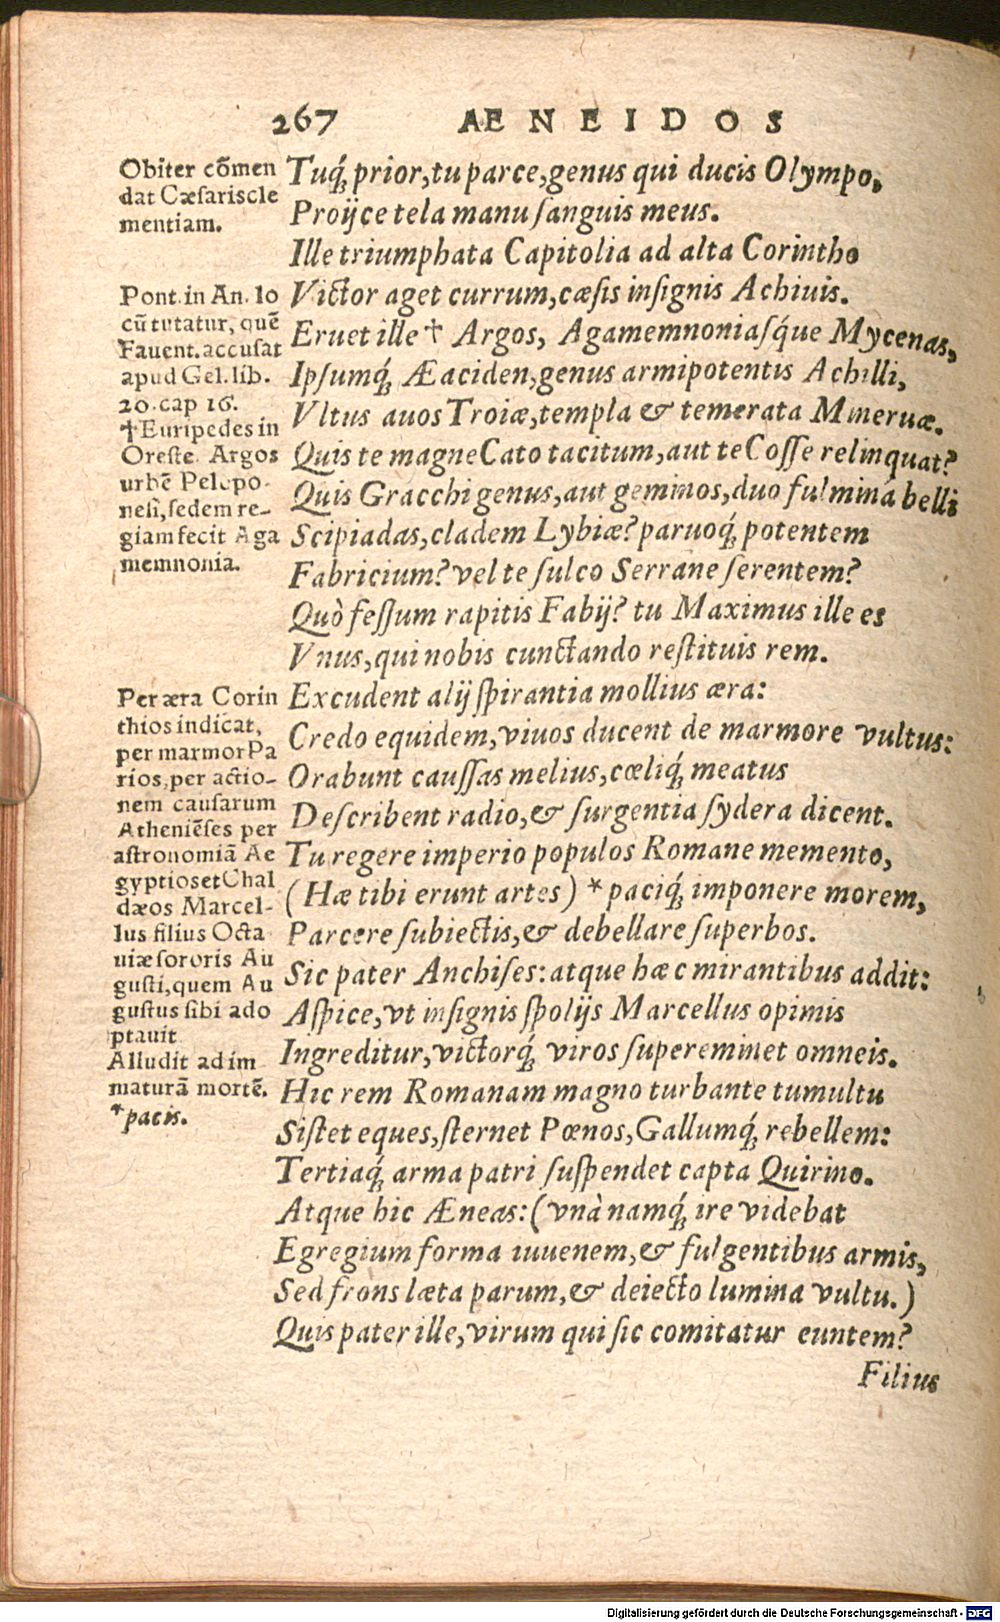 267 AENEIDOS
Obiter cōmen
dat Cæsariscle
mentiam.
Pont. in An. lo
cū tutatur, quē
Fauent. accusat
apud Gel. lib.
20. cap 16.
†Euripedes in
Oreste Argos
urbē Pelopo-
nesi, sedem re-
giam fecit Aga
memnonia.
Per æra Corin
thios indicat,
per marmor Pa
rios, per actio-
nem causarum
Atheniēses per
astronomiā Ae
gyptios et Chal
dæos Marcel-
lus filius Octa
uiæ sororis Au
gusti, quem Au
gustus sibi ado
ptauit
Alludit ad im
maturā mortē.
*pacis.
Tuq́; prior, tu parce, genus qui ducis Olympo,
Proijce tela manu sanguis meus.
Ille triumphata Capitolia ad alta Corintho
Victor aget currum, cæsis insignis Achiuis.
Eruet ille † Argos, Agamemnoniasq́ue Mycenas,
Ipsumq́; Æaciden, genus armipotentis Achilli,
Vltus auos Troiæ, templa & temerata Mineruæ.
Quis te magne Cato tacitum, aut te Cosse relinquat?
Quis Gracchi genus, aut geminos, duo fulmina belli
Scipiadas, cladem Lybiæ? paruoq́; potentem
Fabricium? vel te sulco Serrane serentem?
Quò fessum rapitis Fabij? tu Maximus ille es
Vnus, qui nobis cunctando restituis rem.
Excudent alij spirantia mollius æra:
Credo equidem, viuos ducent de marmore vultus:
Orabunt caussas melius, cœliq́; meatus
Describent radio, & surgentia sydera dicent.
Tu regere imperio populos Romane memento,
(Hæ tibi erunt artes) * paciq́; imponere morem,
Parcere subiectis, & debellare superbos.
Sic pater Anchises: atque hæc mirantibus addit:
Aspice, vt insignis spolijs Marcellus opimis
Ingreditur, victorq́; viros supereminet omneis.
Hic rem Romanam magno turbante tumultu
Sistet eques, sternet Pœnos, Gallumq́; rebellem:
Tertiaq́; arma patri suspendet capta Quirino.
Atque hic Æneas: (vnà namq́; ire videbat
Egregium forma iuuenem, & fulgentibus armis,
Sed frons læta parum, & deiecto lumina vultu.)
Quis pater ille, virum qui sic comitatur euntem?
Filius
Digitalisierung gefördert durch die Deutsche Forschungsgemeinschaft - DFG